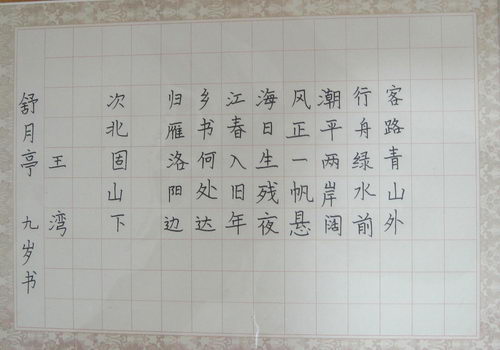 客路青山外
行舟绿水前
潮平两岸阔
风正一帆悬
海日生残夜
江春入旧年
乡书何处达
归雁洛阳边
次北固山下
王湾
舒月亭 九岁书